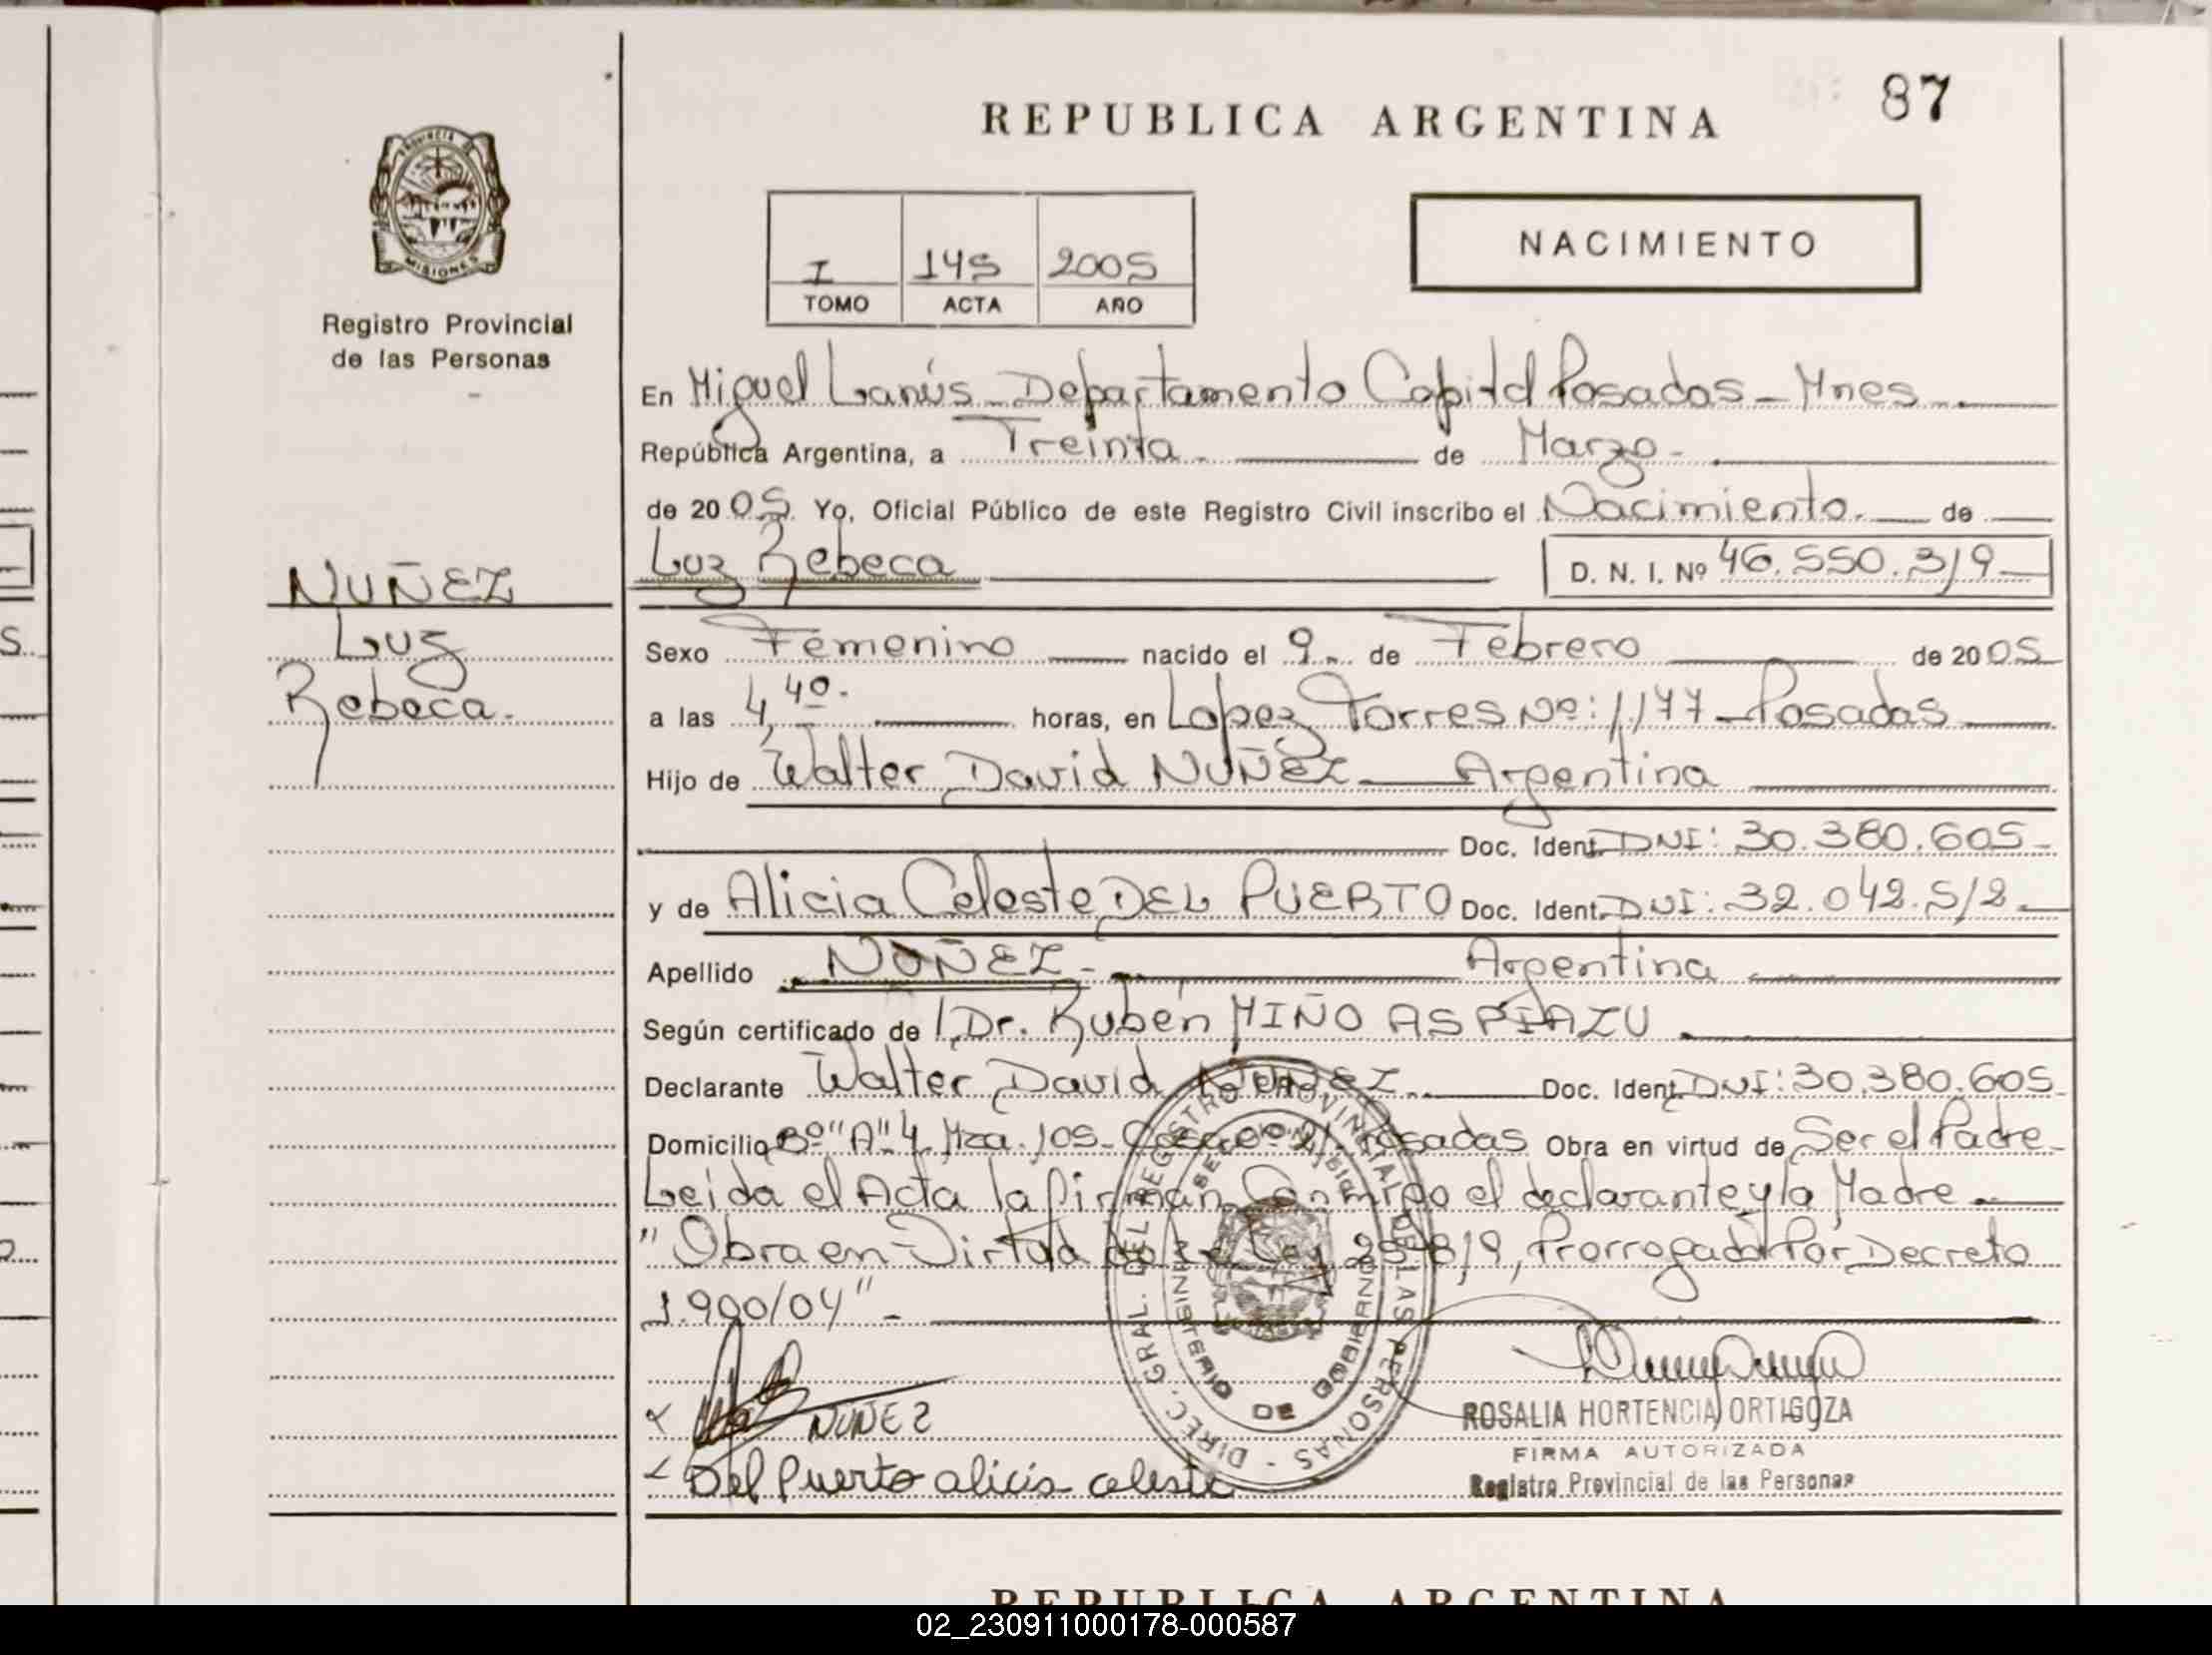 87
REPUBLICA ARGENTINA
PROVINCIA DE
MISIONES
Registro Provincial
de las Personas
I 145 2005
TOMO ACTA AÑO
NACIMIENTO
En Miguel Lanús - Departamento Capital Posadas - Mnes
República Argentina, a Treinta de Marzo
de 2005 Yo, Oficial Público de este Registro Civil inscribo el Nacimiento de
Luz Rebeca D. N. I. Nº 46.550.319
NUÑEZ
Luz
Rebeca.
Sexo Femenino nacido el 9 de Febrero de 2005
a las 4,40 horas, en Lopez Torres Nº: 1177 - Posadas
Hijo de Walter David NUÑEZ Argentina
Doc. Ident. DNI: 30.380.605
y de Alicia Celeste DEL PUERTO Doc. Ident. DNI: 32.042.512
Apellido NUÑEZ Argentina
Según certificado de Dr. Rubén MIÑO ASPIAZU
Declarante Walter David NUÑEZ Doc. Ident. DNI: 30.380.605
Domicilio Bº "A" 4 Mza. 105 - Posadas Obra en virtud de Ser el Padre
Leida el Acta la firman Conmigo el declarante y la Madre
"Obra en Virtud de la Ley 25.819, Prorrogada Por Decreto
1.900/04" -
NUÑEZ
Del Puerto alicia celeste
DIREC. GRAL. DEL REGISTRO PROVINCIAL DE LAS PERSONAS
MINISTERIO DE GOBIERNO
ROSALIA HORTENCIA ORTIGOZA
FIRMA AUTORIZADA
Registro Provincial de las Personas
REPUBLICA ARGENTINA
02_230911000178-000587